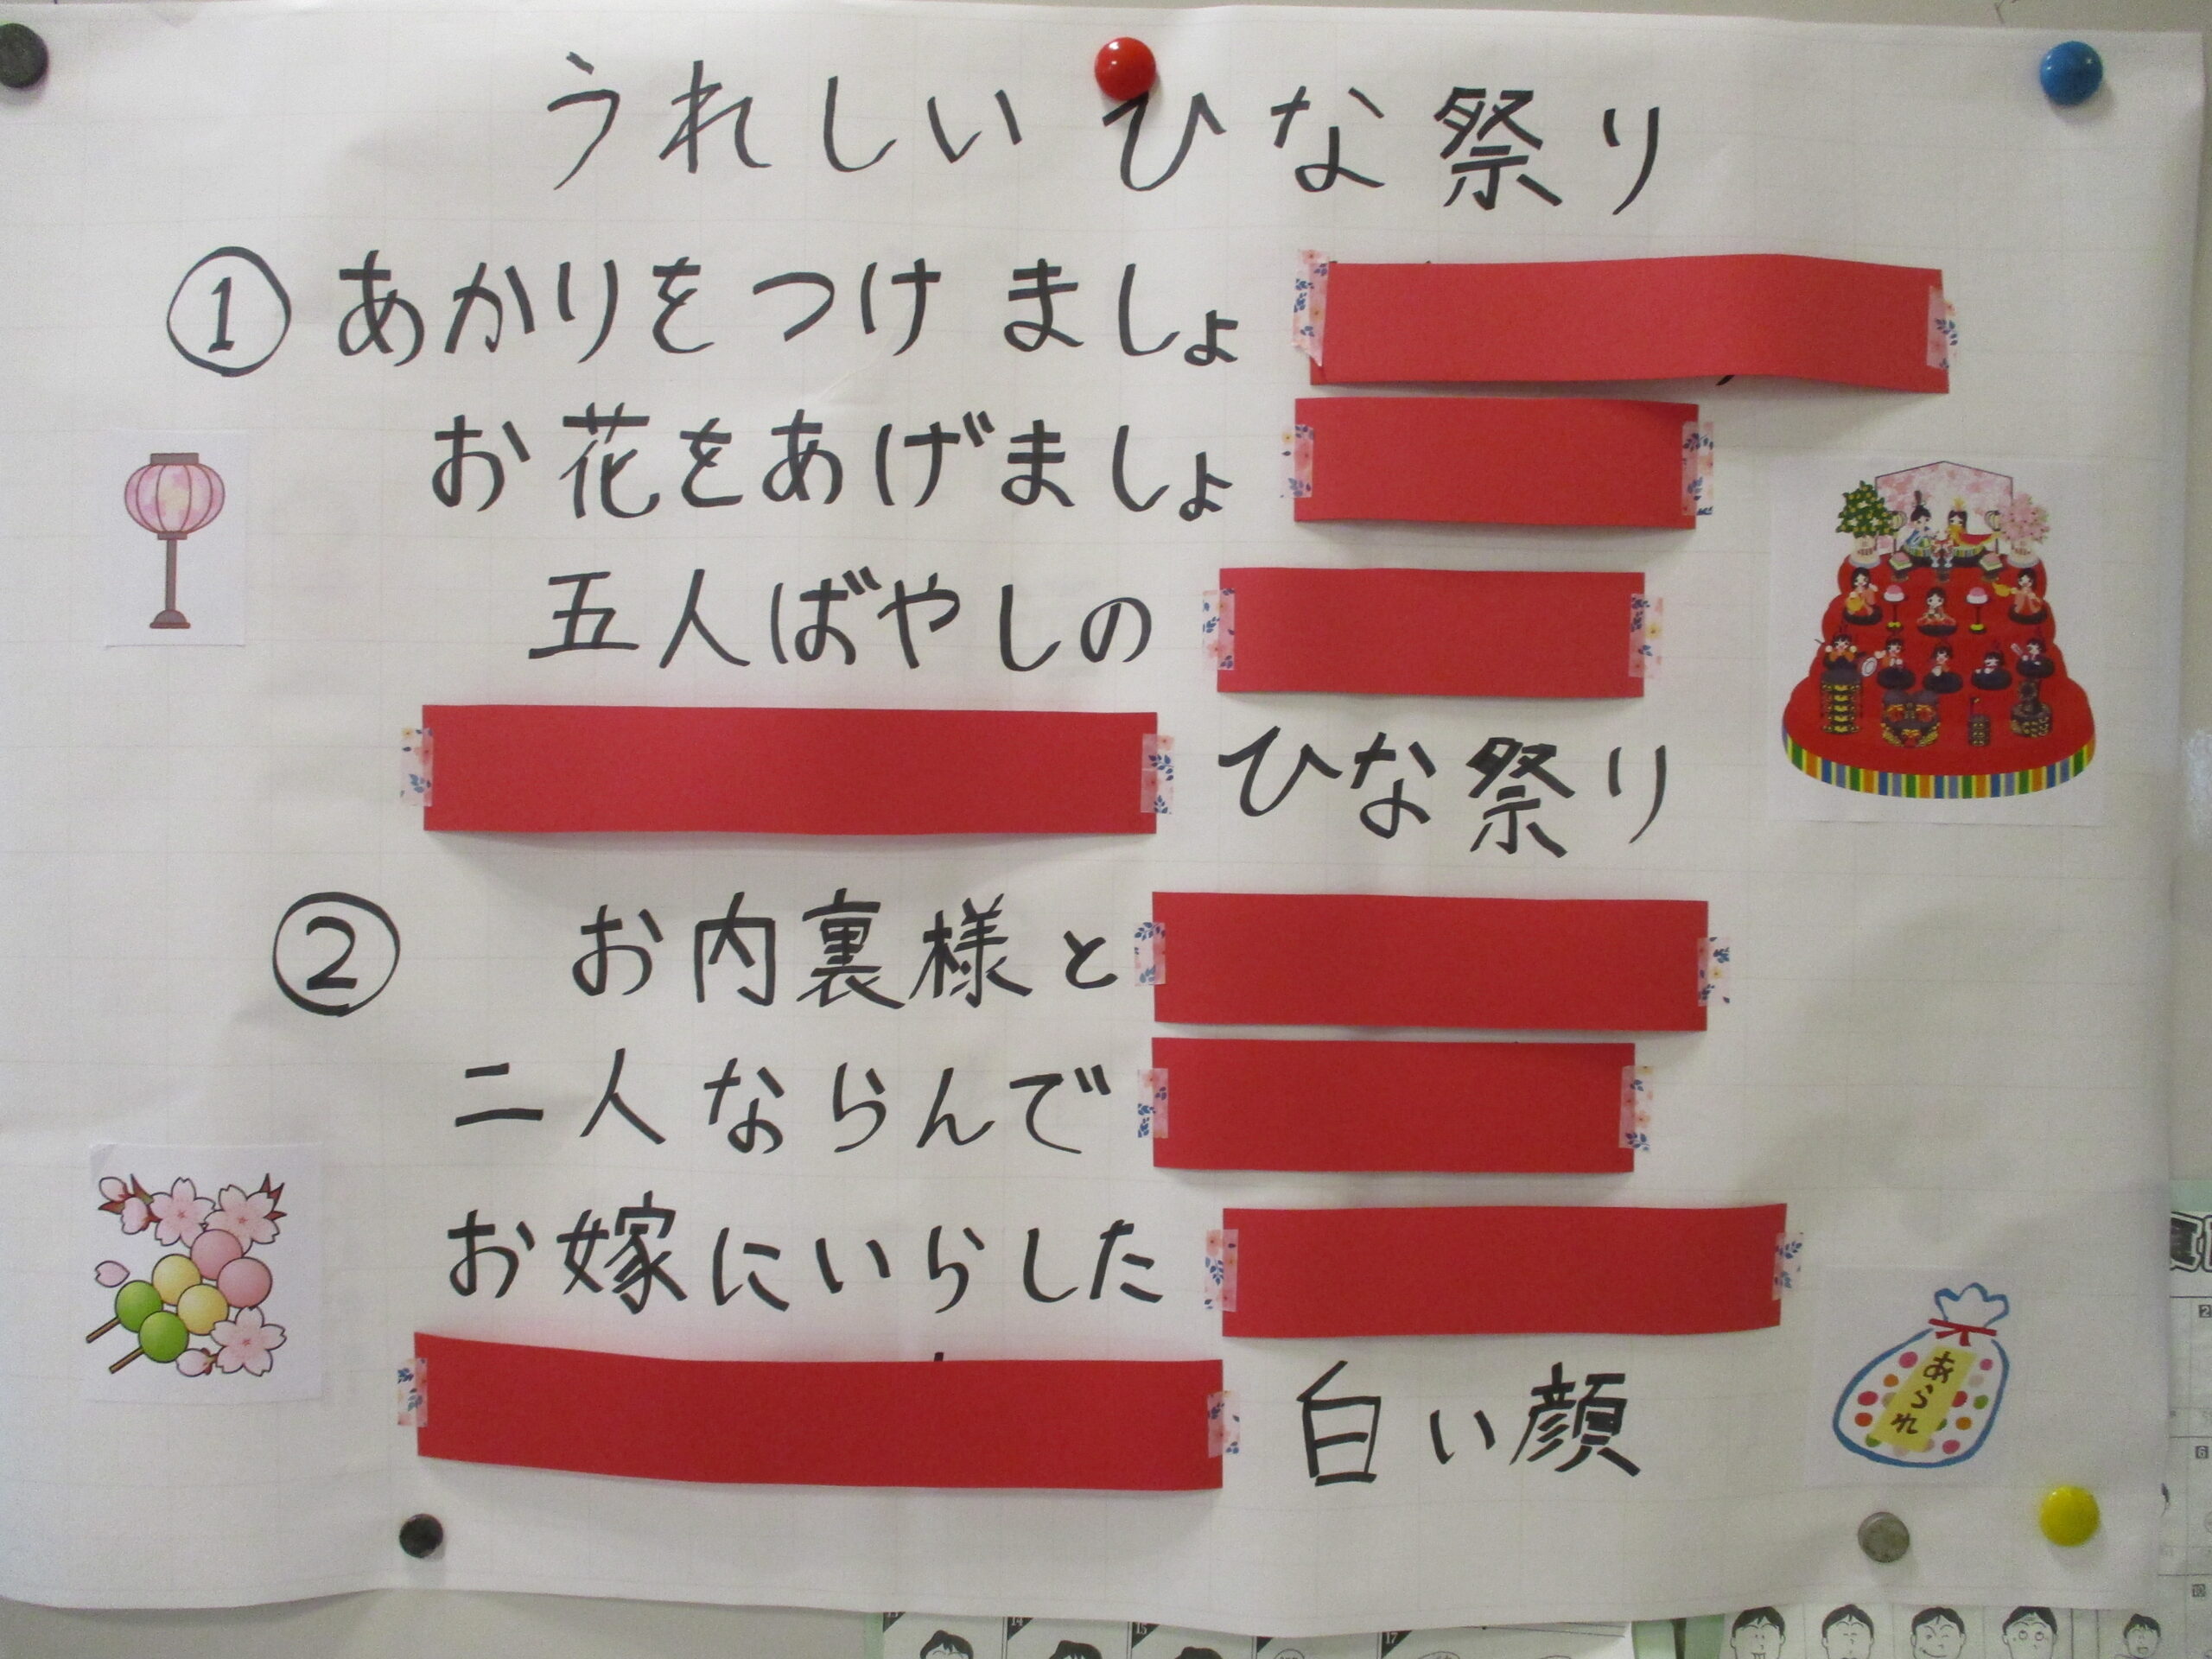 うれしい ひな祭り
① あかりをつけ ましょ
お花をあげましょ
五人ばやしの
ひな祭り
② お内裏様と
二人ならんで
お嫁にいらした
白い顔
あられ
2
6
10
14
15
17